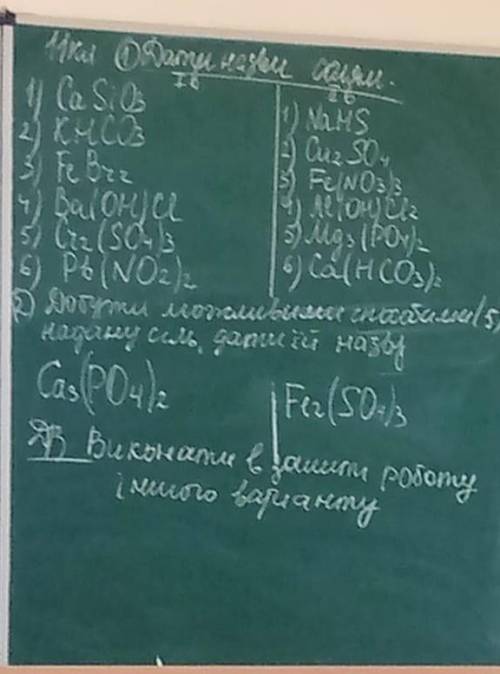 11кл ① Дати назви солям.
Iв
1) CaSiO3
2) KHCO3
3) FeBr2
4) Ba(OH)Cl
5) Cr2(SO4)3
6) Pb(NO2)2
IIв
1) NaHS
2) Cu2SO4
3) Fe(NO3)3
4) Al(OH)Cl2
5) Mg3(PO4)2
6) Ca(HCO3)2
② Добути можливими способами (5)
надану сіль, дати їй назву
Ca3(PO4)2
Fe2(SO4)3
ДЗ Виконати в зошиті роботу
іншого варианту